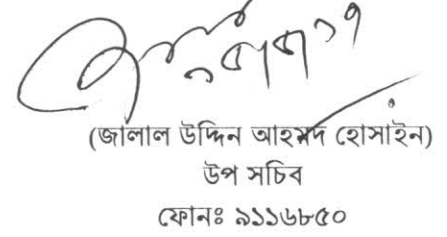 (জালাল উদ্দিন আহমদ হোসাইন)
উপ সচিব
ফোনঃ ৯১১৬৮৫০